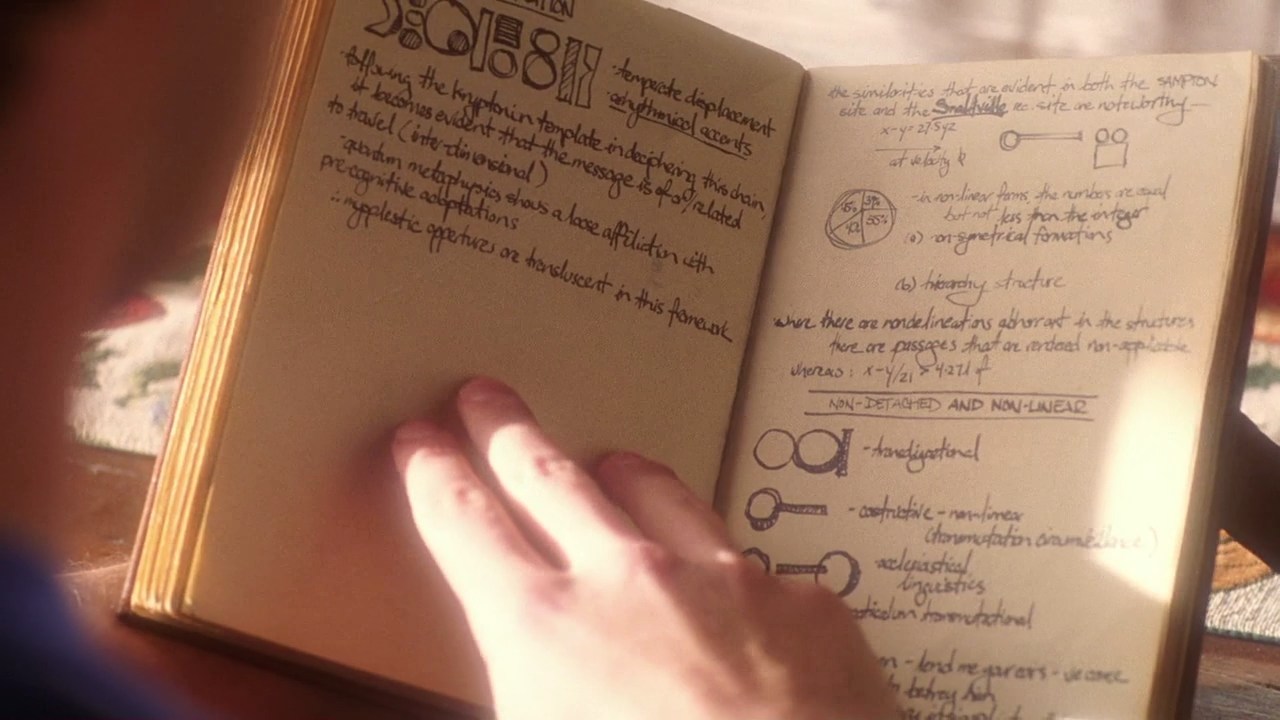 temperate displacement
arhythmical accents
following the kryptonian template in deciphering this chain,
it becomes evident that the message is of/related
to travel (inter-dimensional)
-quantum metaphysics shows a loose affiliation with
pre-cognitive adaptations
appertures are transluscent in this framework
the similarities that are evident in both the SAMPTON
site and the Smallville rec. site are noteworthy—
at velocity
55%
-in nonlinear forms, the numbers are equal
but not less than the integer
(a) formations
(b) hierarchy structure
where there are nondelineations abhorrant in the structures
there are passages that are rendered non-applicable
whereas:
NON-DETACHED AND NON-LINEAR
- non-linear
linguistics
transmutational
- lend me your ears - we come
betray him